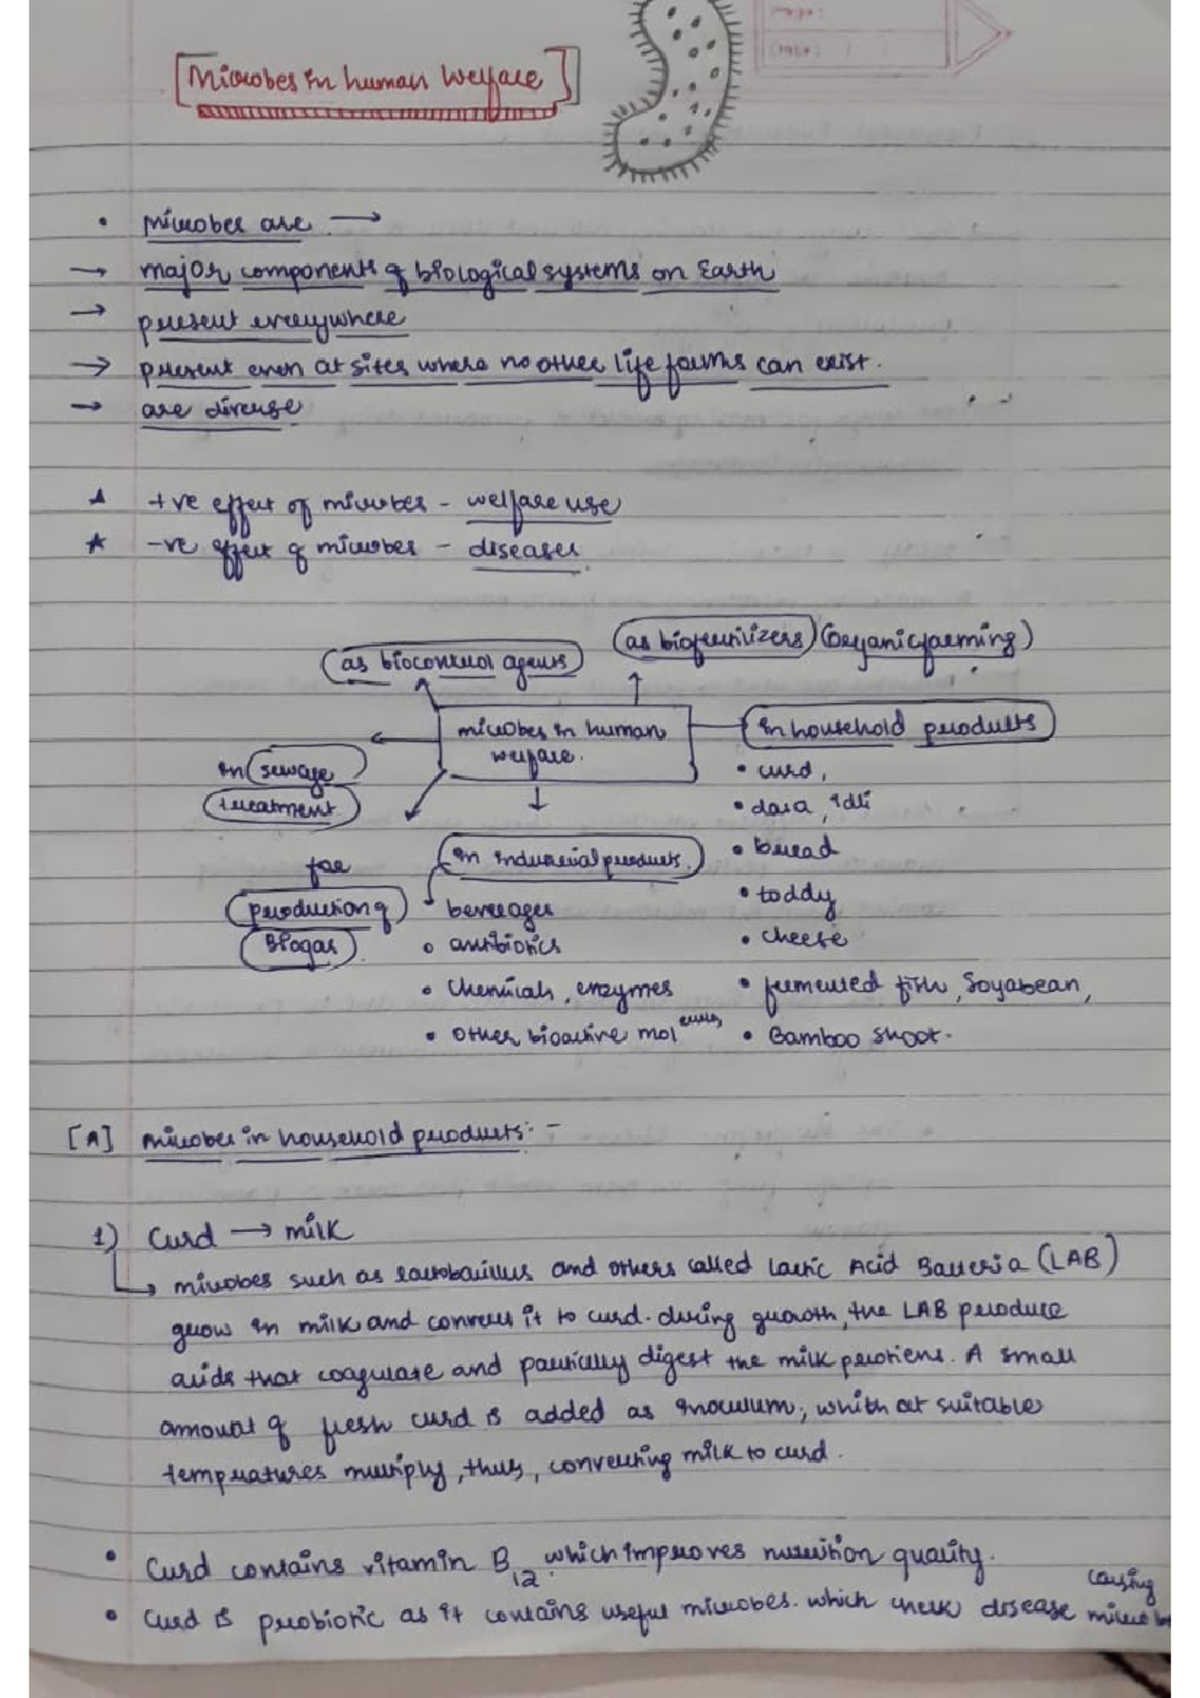 [Microbes in human welfare]
• microbes are →
→ major components of biological systems on Earth
→ present everywhere
→ present even at sites where no other life forms can exist.
→ are diverse
★ +ve effect of microbes - welfare use
★ -ve effect of microbes - diseases
as biofertilizers (Organic farming)
as biocontrol agents
microbes in human
welfare.
in household products
in sewage
treatment
• curd,
• dosa, idli
• bread
• toddy
• cheese
• fermented fish, Soyabean,
• Bamboo shoot.
in industrial products
• beverages
• antibiotics
• chemicals, enzymes
• other bioactive molecules
for
production of
Biogas
[A] microbes in household products: -
1) Curd → milk
↳ microbes such as lactobacillus and others called Lactic Acid Bacteria (LAB)
grow in milk and convert it to curd. during growth, the LAB produce
acids that coagulate and partically digest the milk protiens. A small
amount of fresh curd is added as inoculum, which at suitable
tempratures multiply, thus, converting milk to curd.
• Curd contains vitamin B12. which improves nutrition quality.
• Curd is probiotic as it contains useful microbes. which check disease causing